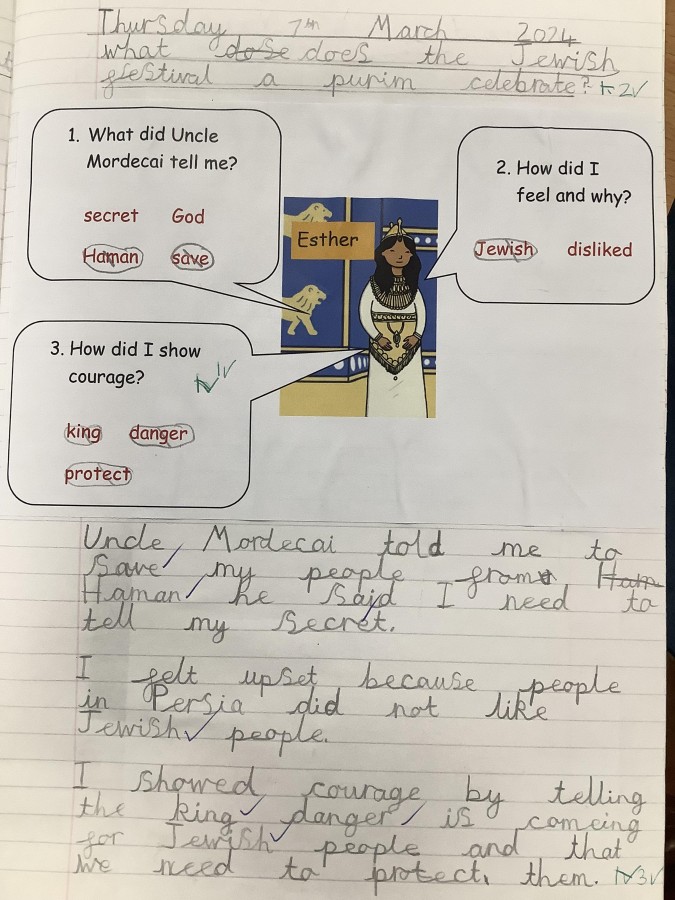 Thursday 7th March 2024
what dose does the Jewish
festival a purim celebrate?
1. What did Uncle
Mordecai tell me?
secret God
Haman save
2. How did I
feel and why?
Jewish disliked
Esther
3. How did I show
courage?
king danger
protect
Uncle Mordecai told me to
save my people from Ham
Haman he said I need to
tell my secret.
I felt upset because people
in Persia did not like
Jewish people.
I showed courage by telling
the king danger is comeing
for Jewish people and that
we need to protect them.